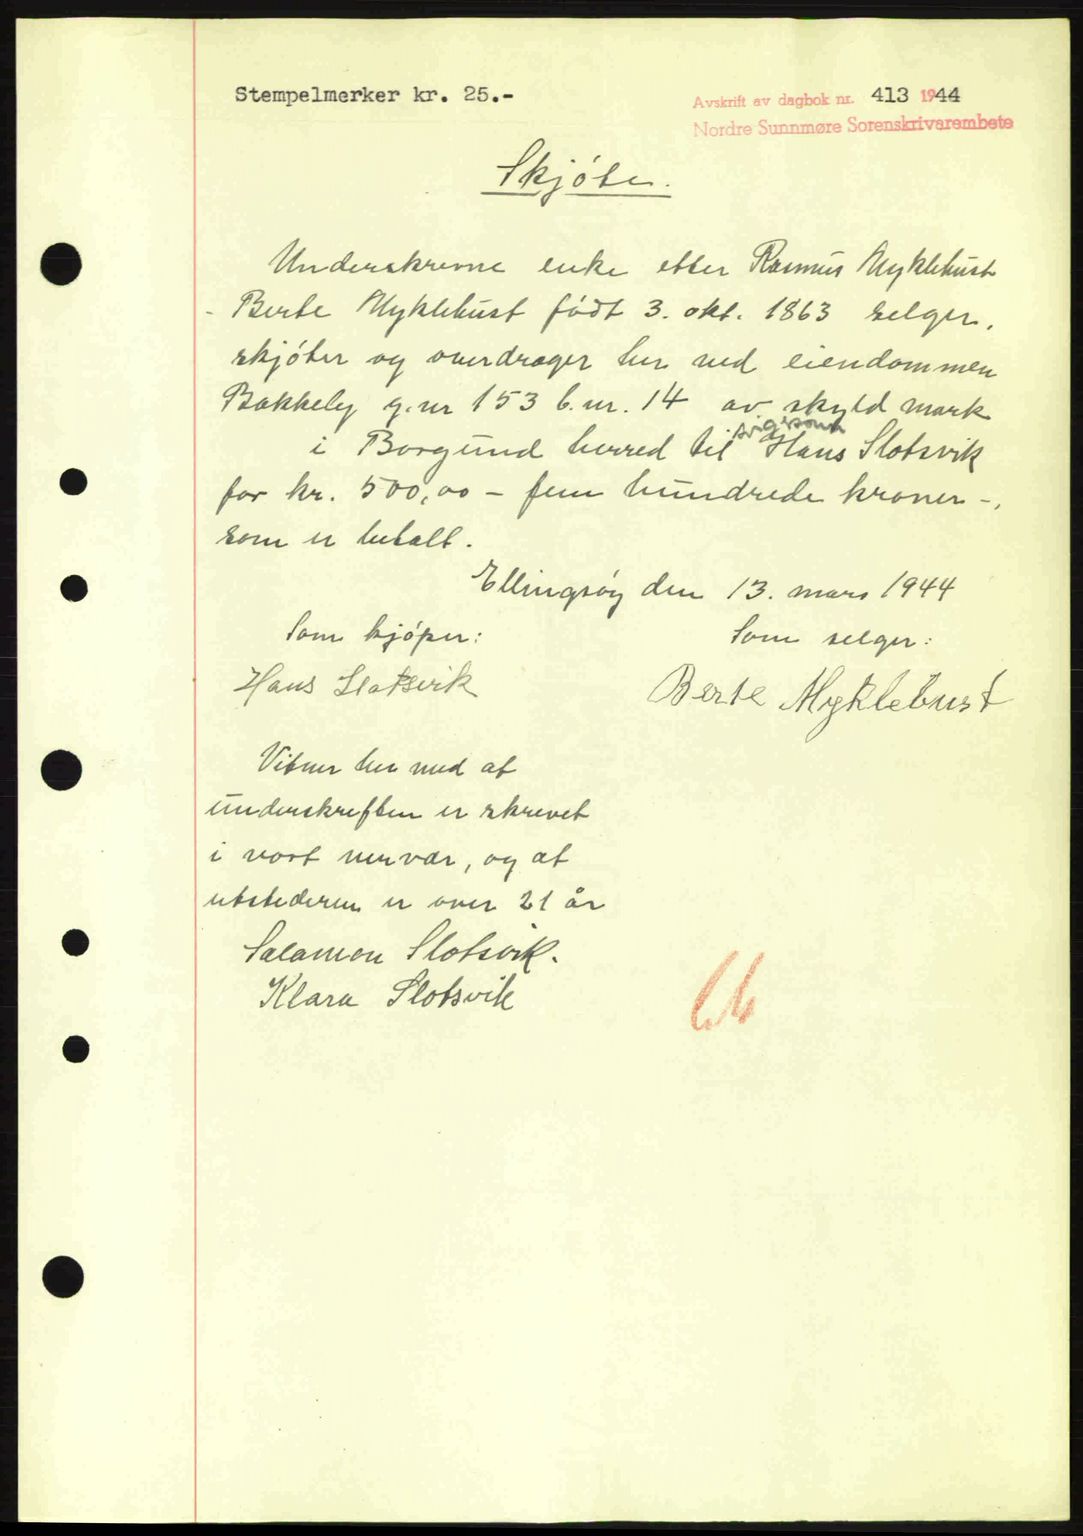 Stempelmerker kr. 25.-
Avskrift av dagbok nr. 413 1944
Nordre Sunnmøre Sorenskrivarembete
Skjöte.
Underskrevne enke etter Rasmus Myklebust
- Berte Myklebust födt 3. okt. 1863 selger,
skjöter og overdrager her ved eiendommen
Bakkely g.nr 153 b.nr. 14 av skyld mark
i Borgund herred til svigersønn Hans Slotsvik
for kr. 500,00 - fem hundrede kroner -,
som er betalt.
Ellingsöy den 13. mars 1944
Som kjöper:
Som selger:
Hans Slotsvik
Berte Myklebust
Vitner her med at
underskreften er skrevet
i vort nervær, og at
utstederen er over 21 år
Salamon Slotsvik.
Klara Slotsvik